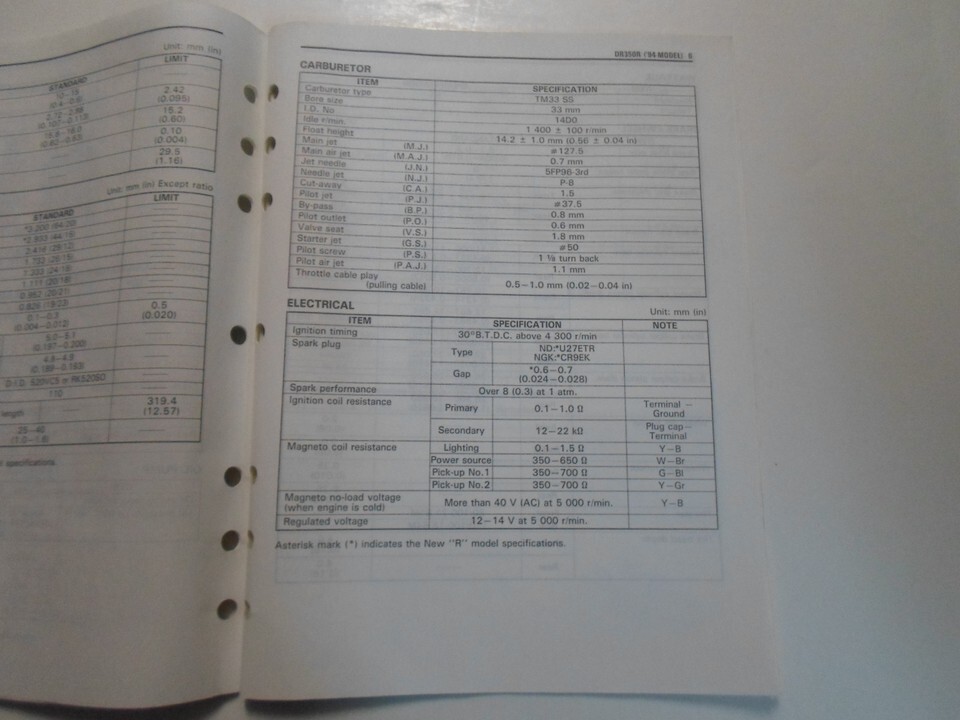 Unit: mm (in)
STANDARD LIMIT
2.42
(0.095)
15.2
(0.60)
0.10
(0.004)
29.5
(1.16)
Unit: mm (in) Except ratio
STANDARD LIMIT
0.5
(0.020)
D.I.D. 520VC5 or RK520SO
110
length 319.4
(12.57)
25–40
(1.0–1.6)
specifications.
DR350R ('94-MODEL) 6
CARBURETOR
ITEM SPECIFICATION
Carburetor type TM33 SS
Bore size 33 mm
I.D. No 14D0
Idle r/min. 1 400 ± 100 r/min
Float height 14.2 ± 1.0 mm (0.56 ± 0.04 in)
Main jet (M.J.) #127.5
Main air jet (M.A.J.) 0.7 mm
Jet needle (J.N.) 5FP96-3rd
Needle jet (N.J.) P-8
Cut-away (C.A.) 1.5
Pilot jet (P.J.) #37.5
By-pass (B.P.) 0.8 mm
Pilot outlet (P.O.) 0.6 mm
Valve seat (V.S.) 1.8 mm
Starter jet (G.S.) #50
Pilot screw (P.S.) turn back
Pilot air jet (P.A.J.) 1.1 mm
Throttle cable play
(pulling cable) 0.5–1.0 mm (0.02–0.04 in)
ELECTRICAL
Unit: mm (in)
ITEM SPECIFICATION NOTE
Ignition timing 30°B.T.D.C. above 4 300 r/min
Spark plug Type ND:*U27ETR
NGK:*CR9EK
Gap *0.6–0.7
(0.024–0.028)
Spark performance Over 8 (0.3) at 1 atm.
Ignition coil resistance Primary 0.1–1.0 Ω Terminal –
Ground
Secondary 12–22 kΩ Plug cap–
Terminal
Magneto coil resistance Lighting 0.1–1.5 Ω Y–B
Power source 350–650 Ω W–Br
Pick-up No.1 350–700 Ω G–Bl
Pick-up No.2 350–700 Ω Y–Gr
Magneto no-load voltage
(when engine is cold) More than 40 V (AC) at 5 000 r/min. Y–B
Regulated voltage 12–14 V at 5 000 r/min.
Asterisk mark (*) indicates the New "R" model specifications.